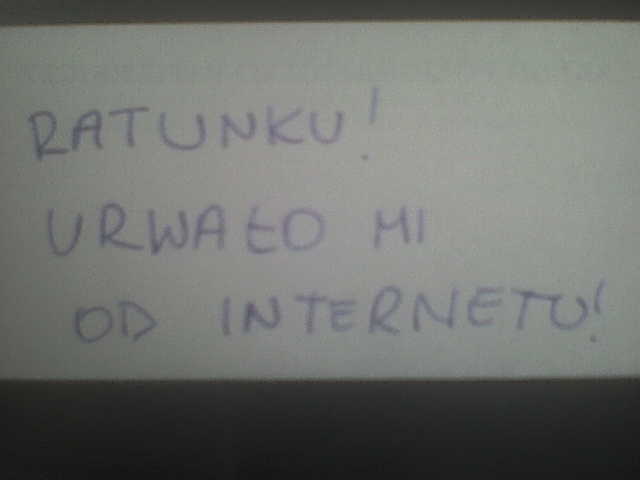 RATUNKU!
URWAŁO MI
OD INTERNETU!